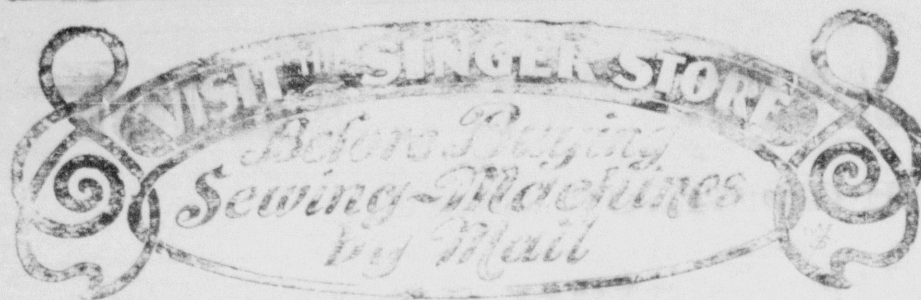 VISIT THE SINGER STORE
Before Buying
Sewing-Machines
by Mail